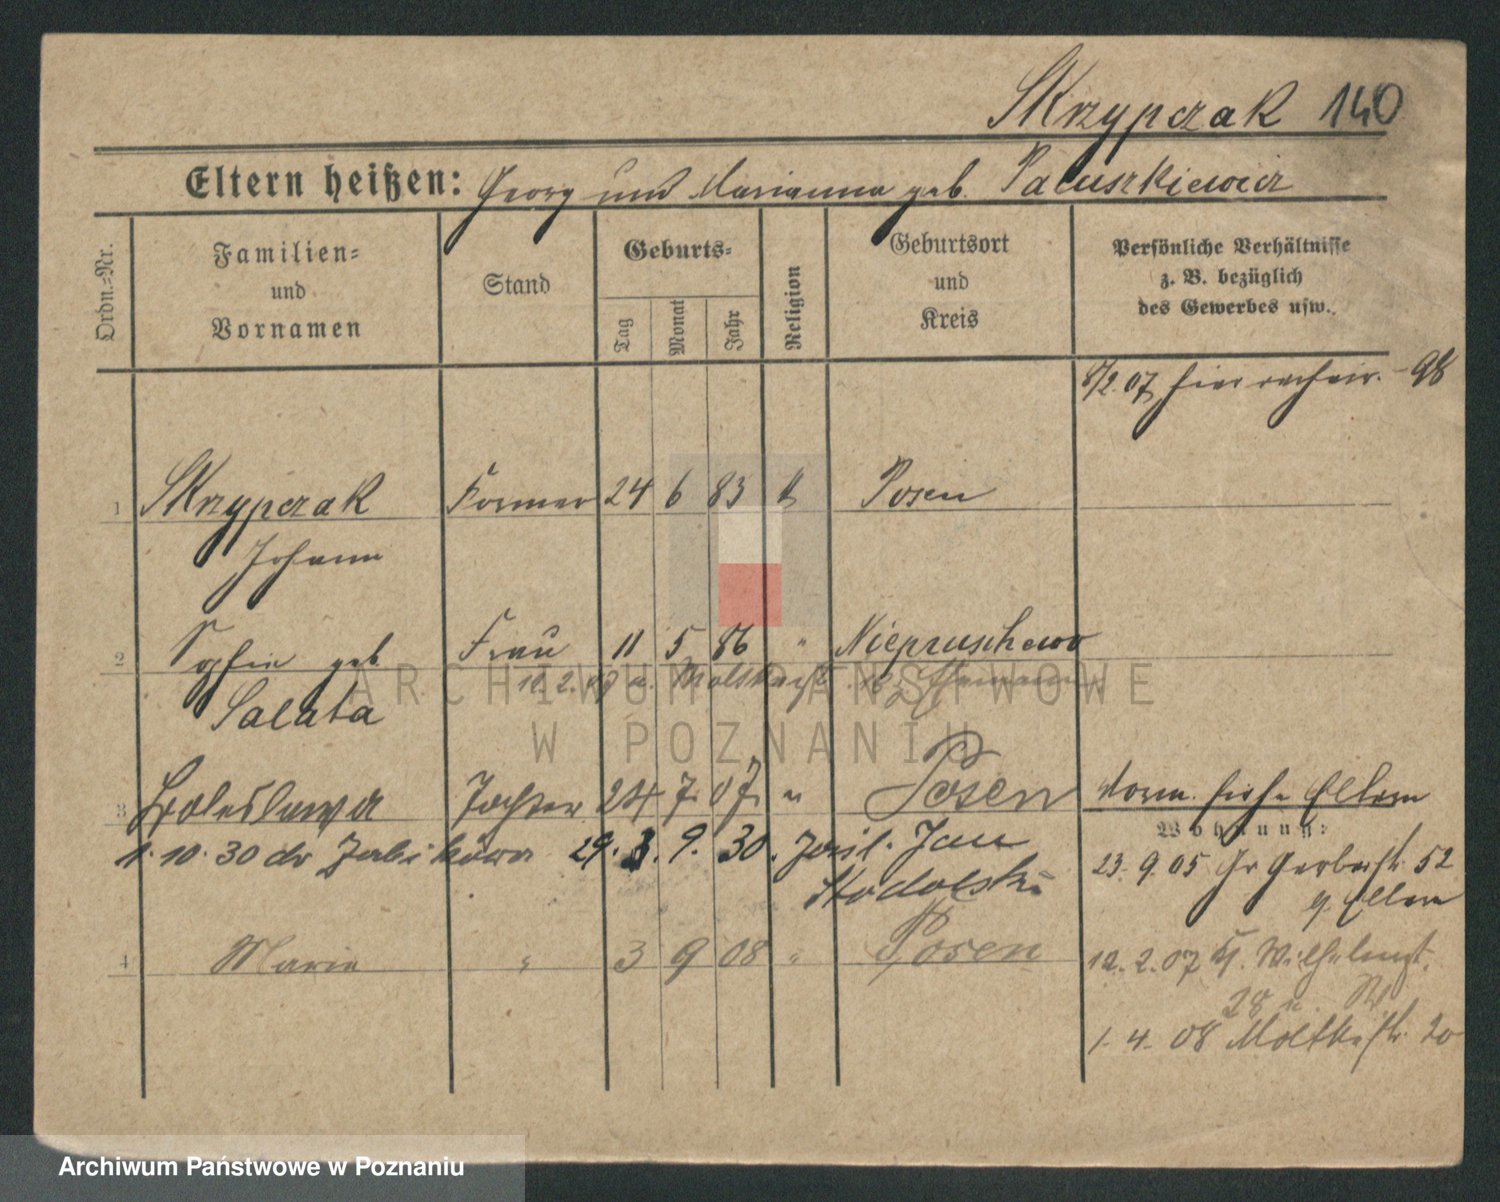 Skrzypczak 140
Eltern heißen: Georg und Marianna geb. Paluszkiewicz
Ordn.-Nr.
Familien-
und
Vornamen
Stand
Geburts-
Tag
Monat
Jahr
Religion
Geburtsort
und
Kreis
Persönliche Verhältnisse
z. B. bezüglich
des Gewerbes usw.
8/2.07 hier 98
1 Skrzypczak Former 24 6 83 k Posen
Johann
2 Sophie geb Frau 11 5 86 " Niepruschewo
12.2.07
Salata
3 Boleslawa Tochter 24 7 07 " Posen Vorm. siehe Eltern
Wohnung:
1.10.30 do Żabikowa 29. 9. 30. Jan
23.9.05 Gr Gerberstr. 52
b/ Eltern
4 Marie " 3 9 08 " Posen 12.2.07 Wilhelmst.
28
1.4.08 Moltkestr. 20
ARCHIWUM PAŃSTWOWE
W POZNANIU
Archiwum Państwowe w Poznaniu